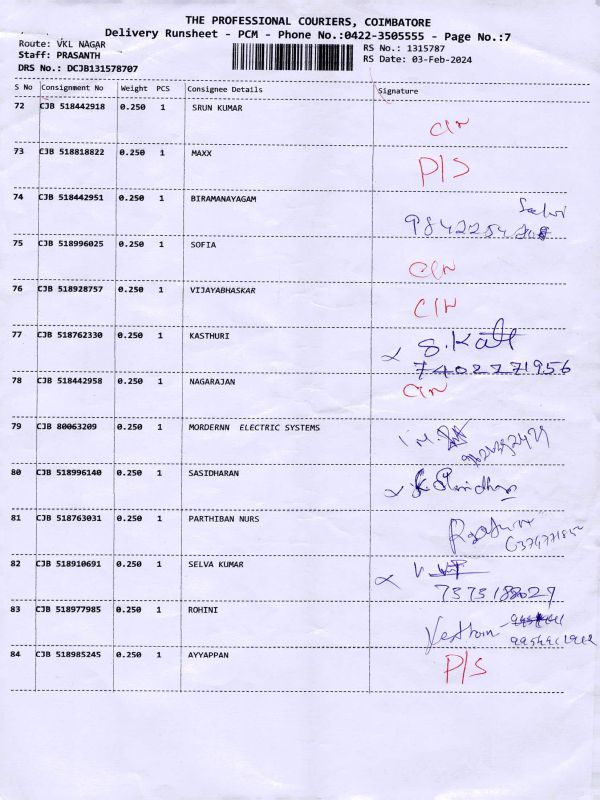 THE PROFESSIONAL COURIERS, COIMBATORE
Delivery Runsheet - PCM - Phone No.:0422-3505555 - Page No.:7
Route: VKL NAGAR
Staff: PRASANTH
DRS No.: DCJB131578707
RS No.: 1315787
RS Date: 03-Feb-2024
S No Consignment No Weight PCS Consignee Details Signature
72 CJB 518442918 0.250 1 SRUN KUMAR
73 CJB 518818822 0.250 1 MAXX P/S
74 CJB 518442951 0.250 1 BIRAMANAYAGAM
75 CJB 518996025 0.250 1 SOFIA
76 CJB 518928757 0.250 1 VIJAYABHASKAR
77 CJB 518762330 0.250 1 KASTHURI
7402271956
78 CJB 518442958 0.250 1 NAGARAJAN
79 CJB 80063209 0.250 1 MORDERNN ELECTRIC SYSTEMS
80 CJB 518996140 0.250 1 SASIDHARAN
81 CJB 518763031 0.250 1 PARTHIBAN NURS
82 CJB 518910691 0.250 1 SELVA KUMAR
83 CJB 518977985 0.250 1 ROHINI
84 CJB 518985245 0.250 1 AYYAPPAN P/S